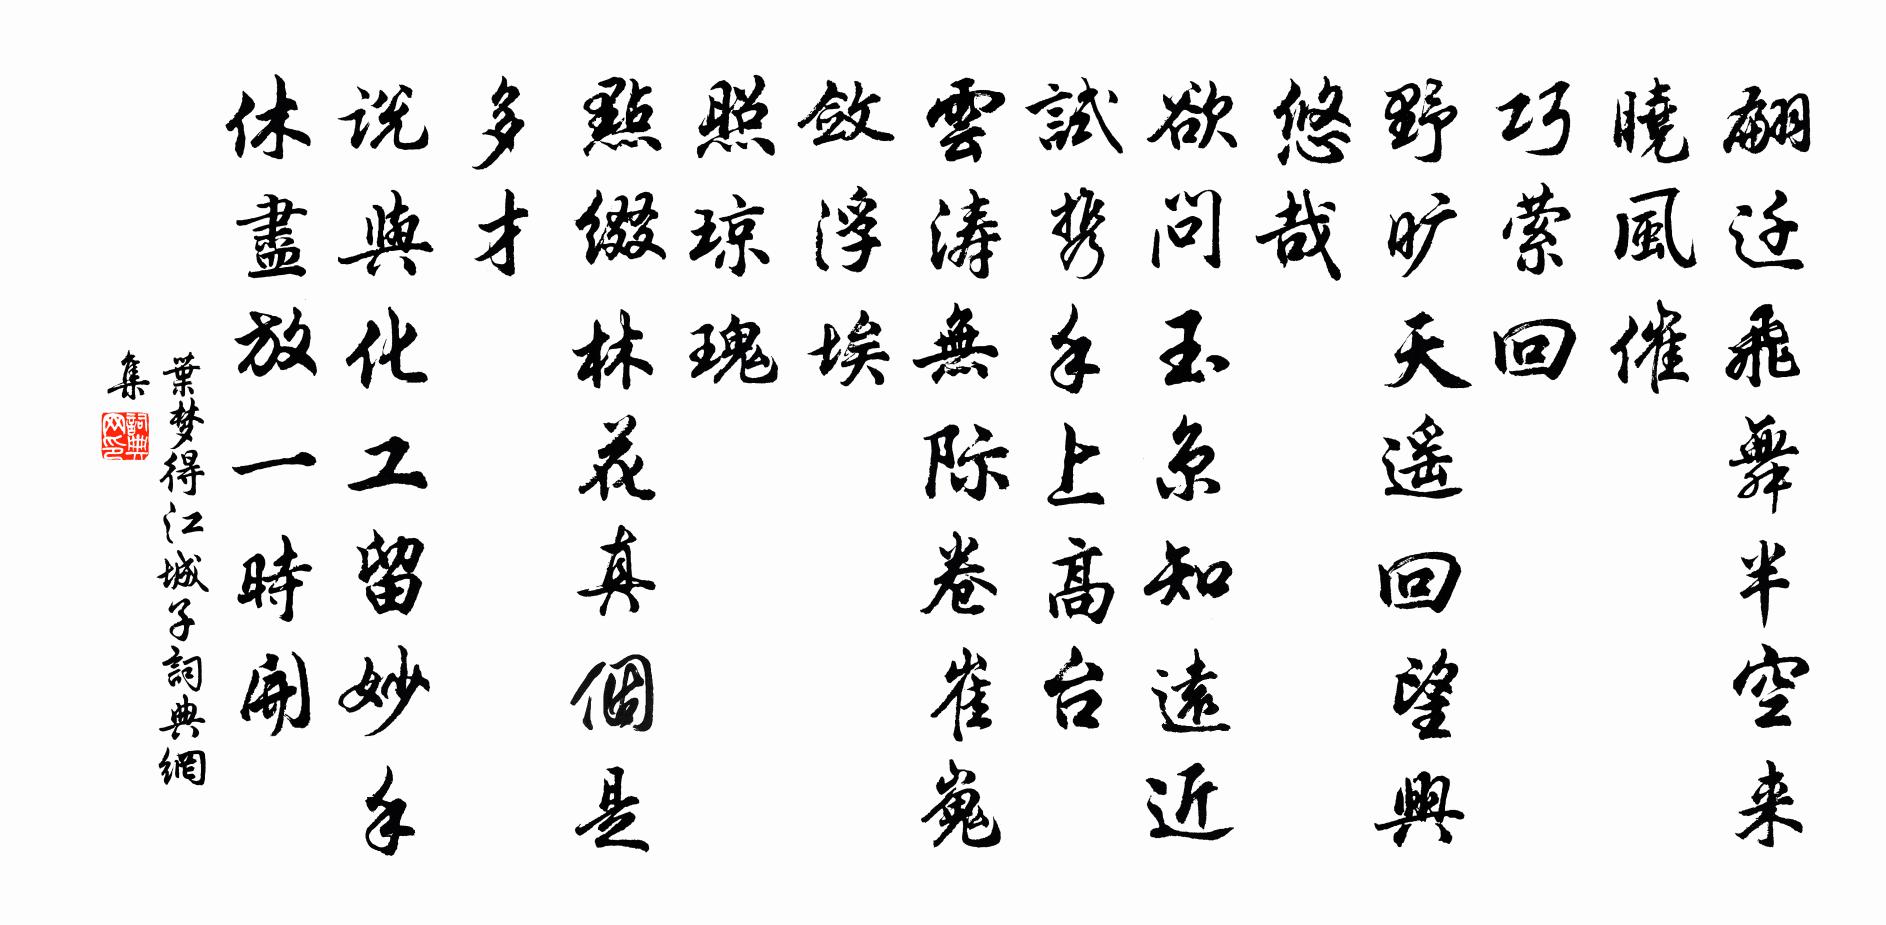 翩迁飛舞半空来
曉風催
巧萦回
野旷天遥回望興
悠哉
欲問玉京知遠近
試携手上高台
雲涛無际卷崔嵬
敛浮埃
照琼瑰
點缀林花真個是
多才
说與化工留妙手
休盡放一時開
葉梦得江城子詞典網
集
詞典
网印